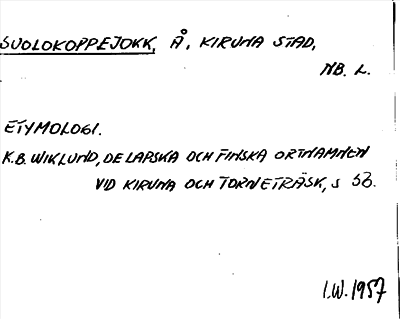 SUOLOKOPPEJOKK, Å, KIRUNA STAD,
NB. L.
ETYMOLOGI.
K.B. WIKLUND, DE LAPSKA OCH FINSKA ORTNAMNEN
VID KIRUNA OCH TORNETRÄSK, S 53.
I.W. 1957